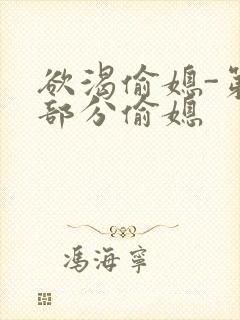 欲渴偷媳-第
部分偷媳
馮海寧